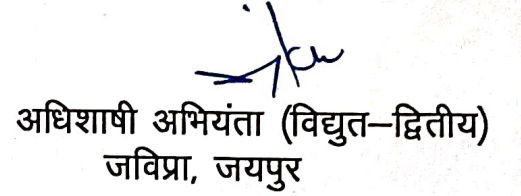 अधिशाषी अभियंता (विद्युत–द्वितीय)
जविप्रा, जयपुर